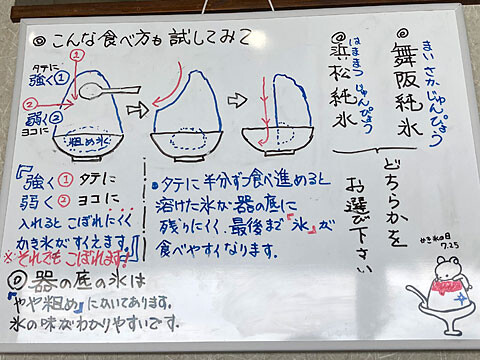 ◎こんな食べ方も試してみて
タテに
強く①
②
弱く②
ヨコに
①
粗め氷
『強く①タテに
弱く②ヨコに
入れるとこぼれにくく
かき氷がすくえます。』
※それでもこぼれます!
・タテに半分ずつ食べ進めると
溶けた氷が器の底に
残りにくく、最後まで『氷』が
食べやすくなります。
◎器の底の氷は
『やや粗め』にひいてあります。
氷の味がわかりやすいです。
まいさかじゅんぴょう
◎舞阪純氷
はままつじゅんぴょう
◎浜松純氷
どちらかを
お選び下さい
かき氷の日
7.25